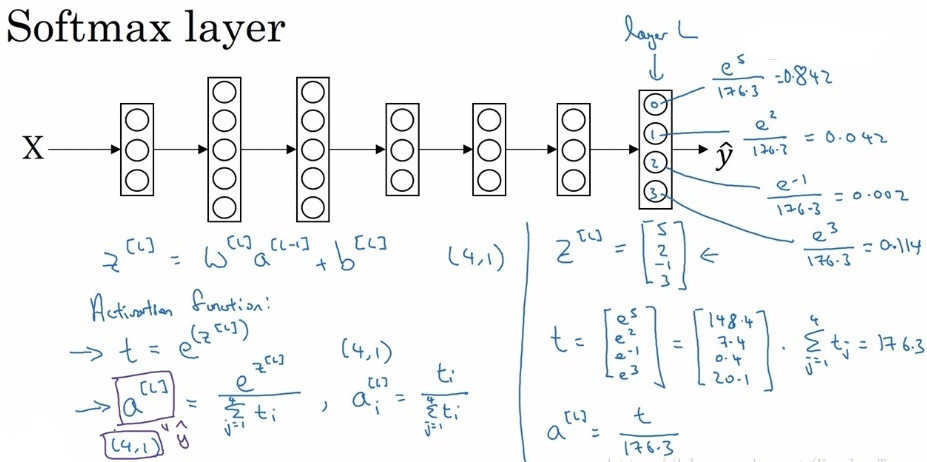 Softmax layer
layer L
X
ŷ
0
1
2
3
e^5/176.3 = 0.842
e^2/176.3 = 0.042
e^-1/176.3 = 0.002
e^3/176.3 = 0.114
z^[L] = W^[L] a^[L-1] + b^[L] (4,1)
Activation function:
→ t = e^(z^[L]) (4,1)
→ a^[L] = e^z^[L] / Σ_{j=1}^4 t_i , a_i^[L] = t_i / Σ_{j=1}^4 t_i
(4,1) ŷ
z^[L] = [5 2 -1 3] ←
t = [e^5 e^2 e^-1 e^3] = [148.4 7.4 0.4 20.1] . Σ_{j=1}^4 t_j = 176.3
a^[L] = t / 176.3